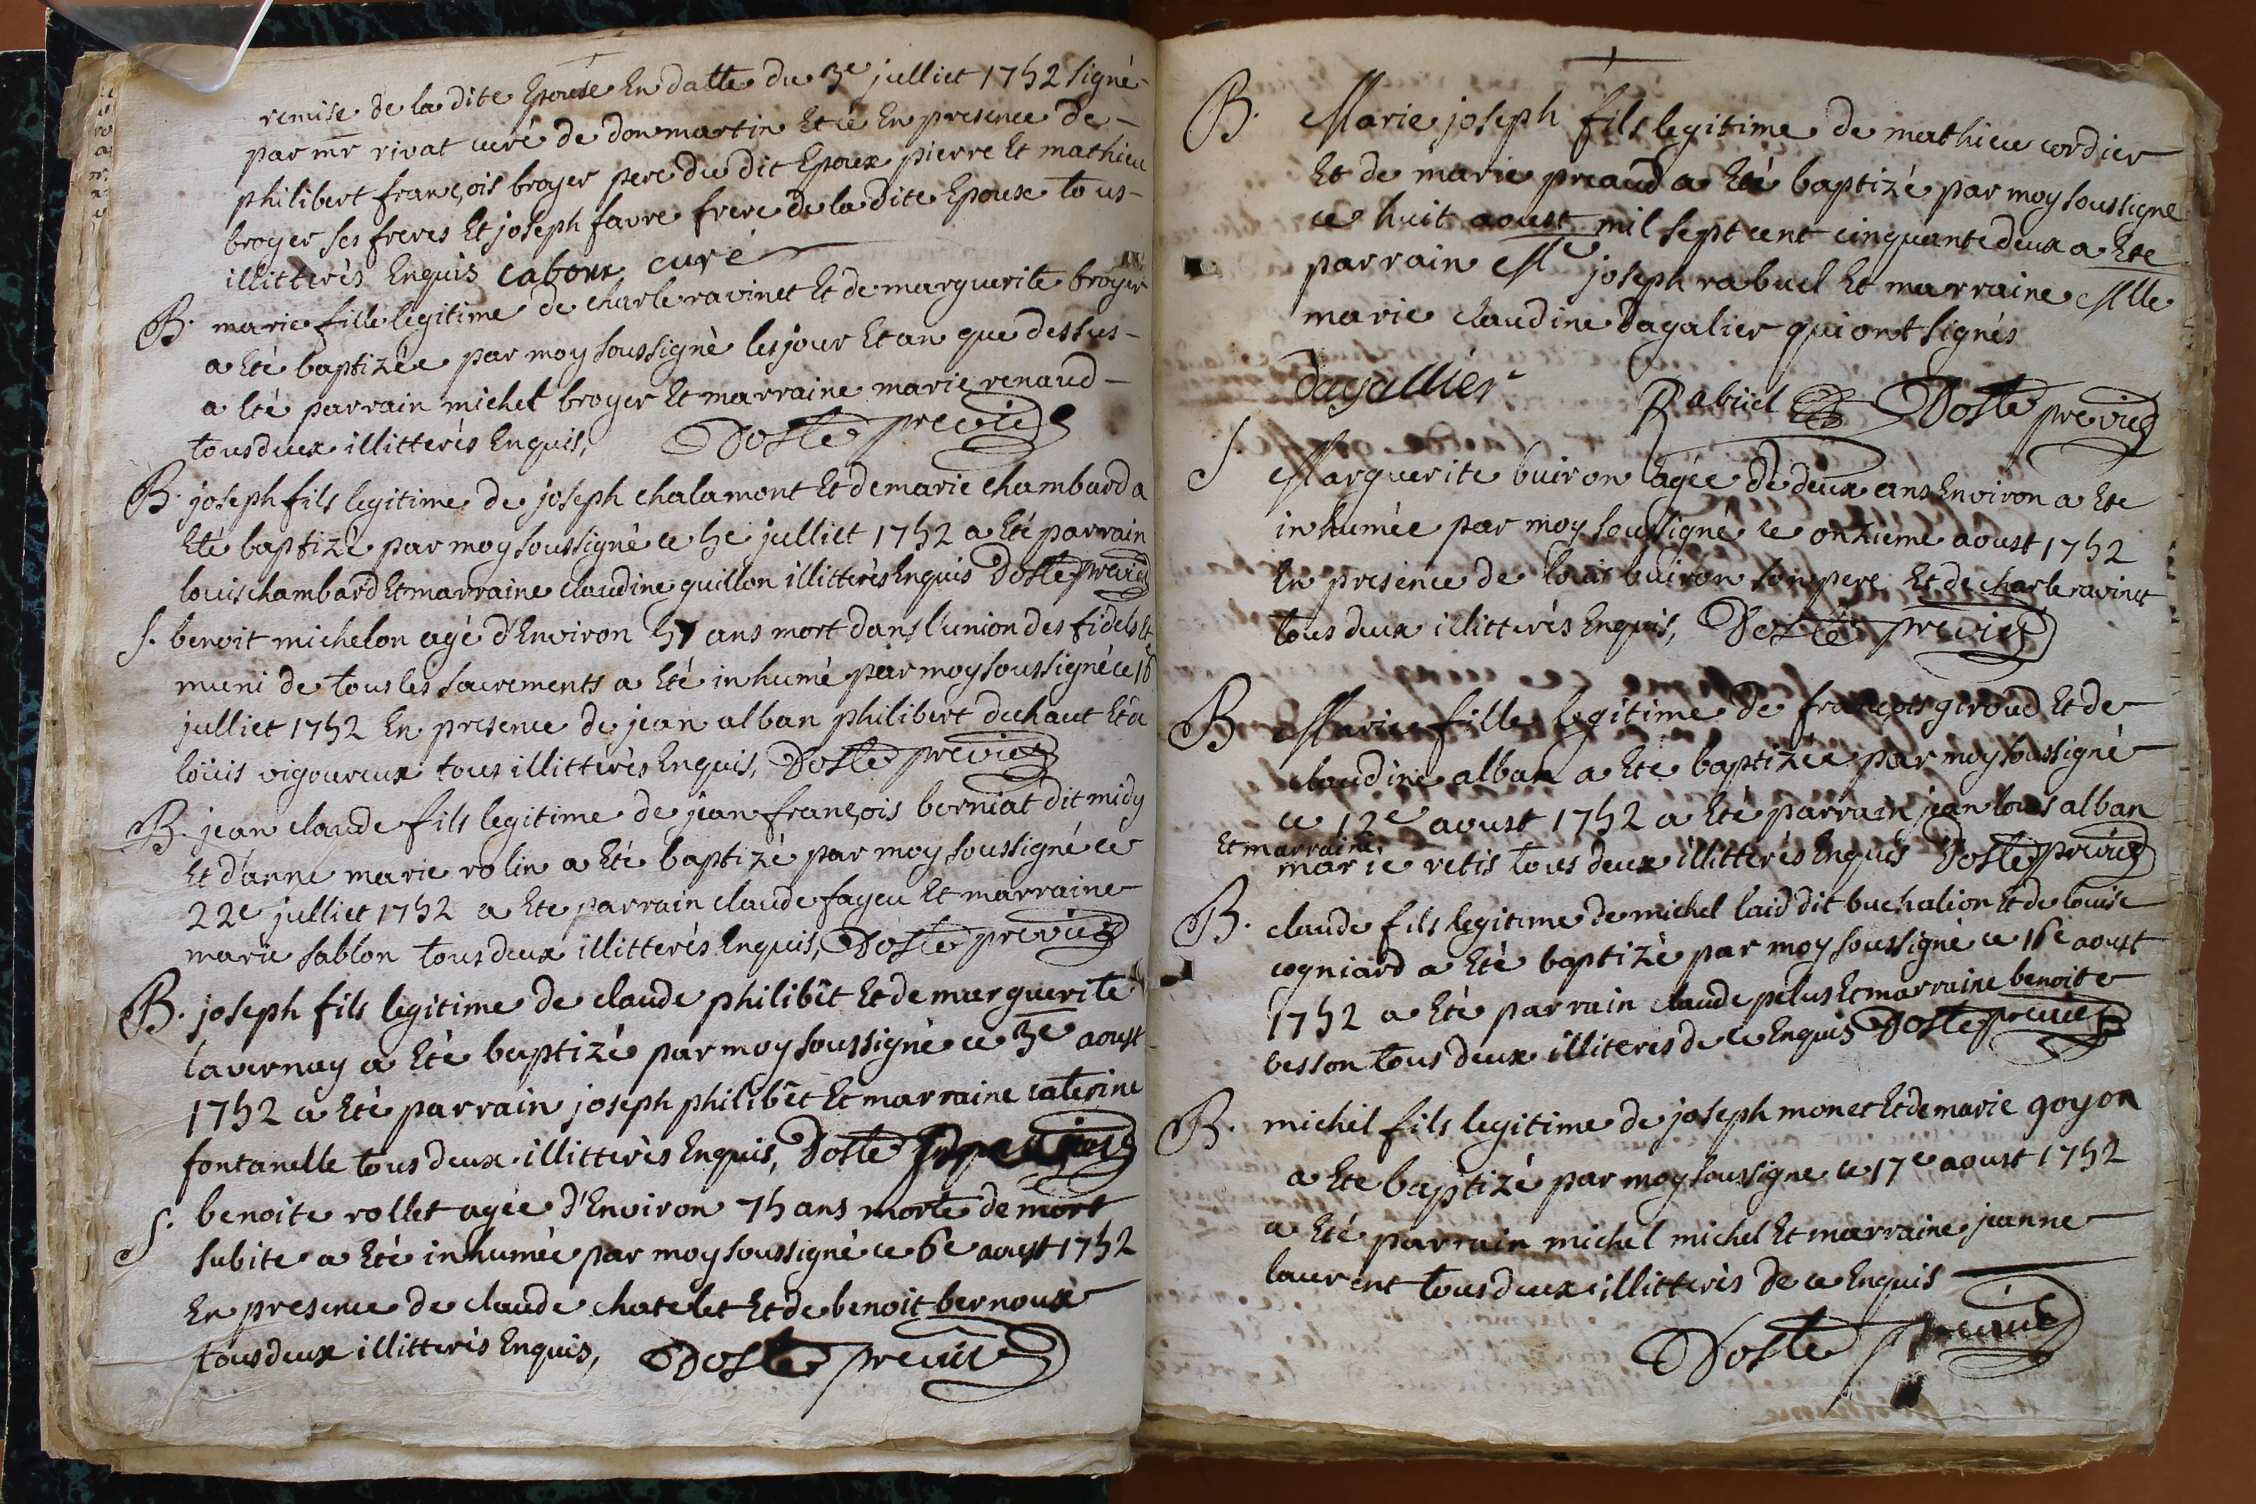 remise de la dite Epouse En datte du 3e julliet 1752 signé
par mr rivat curé de donmartin Et ce En presence de
philibert françois broyer pere du dit Epoux pierre Et mathieu
broyer ses freres Et joseph favre frere de la dite Epouse tous
illitterés Enquis cabour curé
B. marie fille legitime de charle ravinet Et de marguerite broyer
a Eté baptizée par moy soussigné les jour Et an que dessus
a Eté parrain michel broyer Et marraine marie renaud
tous deux illitterés Enquis, Doste previc
B. joseph fils legitime de joseph chalamont Et de marie chambard a
Eté baptizé par moy soussigné ce 5e julliet 1752 a Eté parrain
louis chambard Et marraine claudine guillon illitterés Enquis Doste previc
S. benoit michelon agé d'Environ ans mort dans l'union des fidels Et
muni de tous les sacrements a Eté inhumé par moy soussigné ce 16
julliet 1752 En presence de jean alban philibert duhaut Et a
loüis vigoureux tous illitterés Enquis, Doste previc
B. jean claude fils legitime de jean françois borniat dit midy
Et d'anne marie rolin a Eté baptizé par moy soussigné ce
22e julliet 1752 a Ete parrain claude fageu Et marraine
marie sablon tous deux illitterés Enquis, Doste previc
B. joseph fils legitime de claude philibêt Et de marguerite
lavernay a Eté baptizé par moy soussigné ce 3e aoust
1752 a Eté parrain joseph philibêt Et marraine caterine
fontanelle tous deux illitterés Enquis, Doste
S. benoite rollet agée d'Environ 75 ans morte de mort
subite a Eté inhumée par moy soussigné ce 6e aoust 1752
En presence de claude chatelet Et de benoit bernoux
tous deux illitterés Enquis, Doste previc
B. Marie joseph fils legitime de mathieu cordier
Et de marie preaud a Eté baptizé par moy soussigné
ce huit aoust mil sept cent cinquante deux a Ete
parrain Me joseph rabuel Et marraine Mlle
marie claudine dagalier qui ont signés
dagallier Rabuel Doste previc
S. Marguerite buiron agée de deux ans Environ a Ete
inhumée par moy soussigné ce onzieme aoust 1752
En presence de louis buiron son pere Et de charle ravinet
tous deux illitterés Enquis, Doste previc
B Marie fille legitime de françois giroud Et de
claudine alban a Eté baptizée par moy soussigné
ce 12e aoust 1752 a Eté parrain jean louis alban
Et marraine
marie retis tous deux illitterés Enquis Doste previc
B. claude fils legitime de michel laid dit buchalion Et de louise
cogniard a Eté baptizé par moy soussigné ce 16e aoust
1752 a Eté parrain claude pelus Et marraine benoite
besson tous deux illiterés de ce Enquis Doste previc
B. michel fils legitime de joseph monet Et de marie goyon
a Ete baptizé par moy soussigne ce 17e aoust 1752
a Eté parrain michel michel Et marraine jeanne
laurent tous deux illitterés de ce Enquis
Doste previc